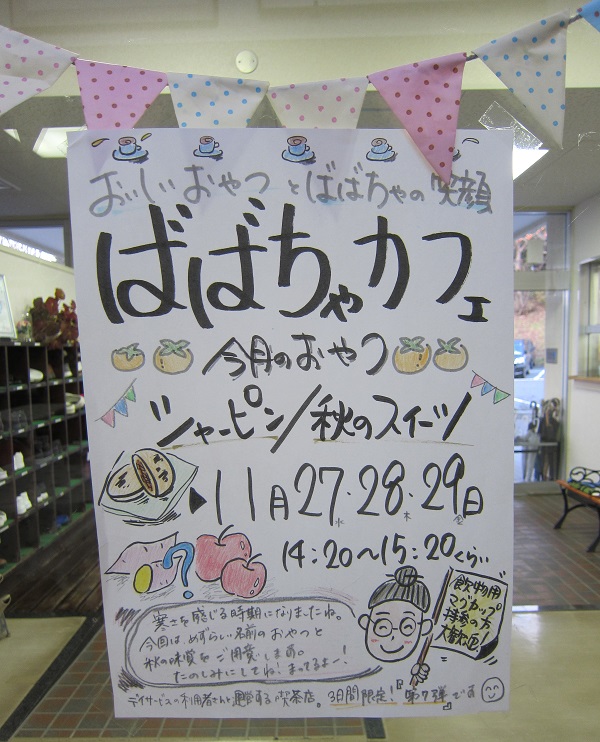 おいしいおやつとばばちゃの笑顔
ばばちゃカフェ
今月のおやつ
シャーピン/秋のスイーツ
▶11月27・28・29日
水 木 金
14:20〜15:20くらい
?
寒さを感じる時期になりましたね。
今回は、めずらしい名前のおやつと
秋の味覚をご用意します。
たのしみにしてね!まってるよー!
飲物用
マグカップ
持参の方
大歓迎!
デイサービスの利用者さんと運営する喫茶店。3日間限定!『第7弾』です